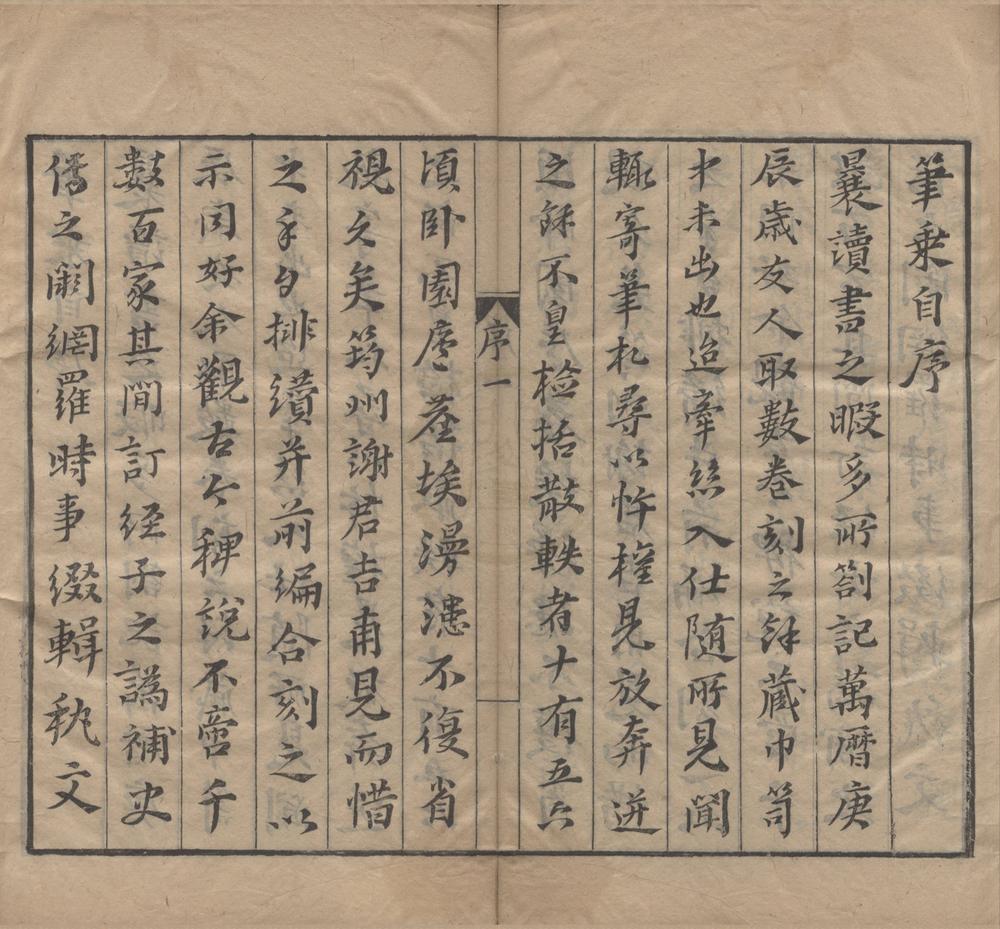 筆乗自序
曩讀書之暇多所劄記萬曆庚
辰歲友人取數卷刻之餘藏巾笥
中未出也迨牽絲入仕隨所見聞
輒寄筆札尋以忤權見放奔迸
之餘不皇檢括散軼者十有五六
序一
頃卧園廬塵埃漫漶不復省
視久矣筠州謝君吉甫見而惜
之手自排纘并前編合刻之以
示同好余觀古今稗說不啻千
數百家其間訂經子之譌補史
傳之闕網羅時事綴輯秇文